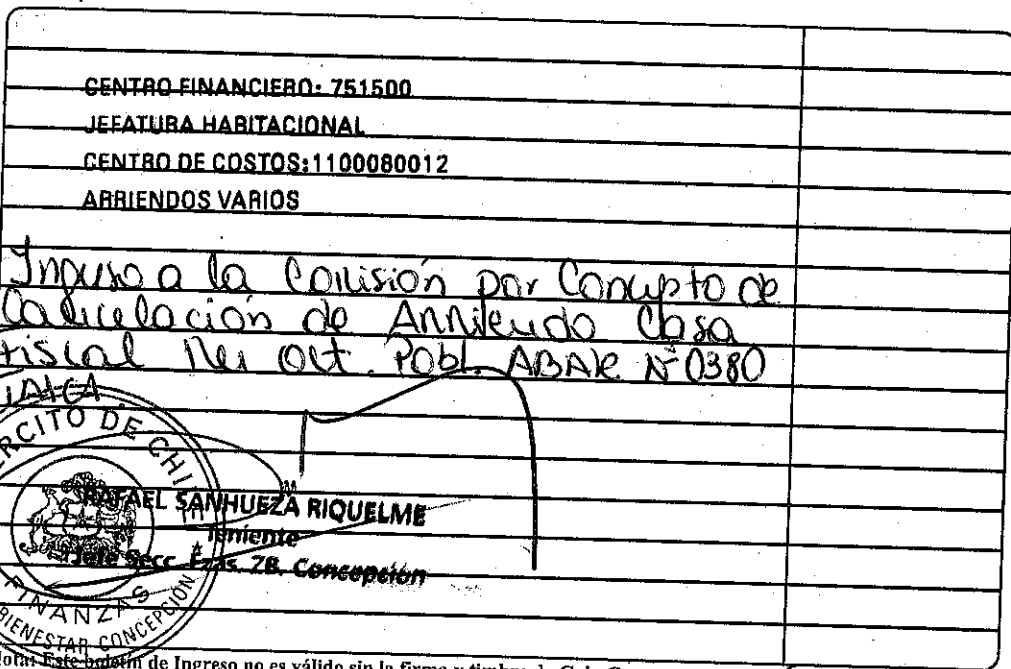 CENTRO FINANCIERO: 751500
JEFATURA HABITACIONAL
CENTRO DE COSTOS:1100080012
ARRIENDOS VARIOS
Ingreso a la Comisión por Concepto de
Cancelación de Arriendo Casa
Fiscal Oct. Pobl. N° 0380
EJERCITO DE CHILE
RAFAEL SANHUEZA RIQUELME
Teniente
Jefe Secc. Fzas. ZB. Concepción
FINANZAS
BIENESTAR CONCEPCIÓN
Nota: Este boletín de Ingreso no es válido sin la firma y timbre